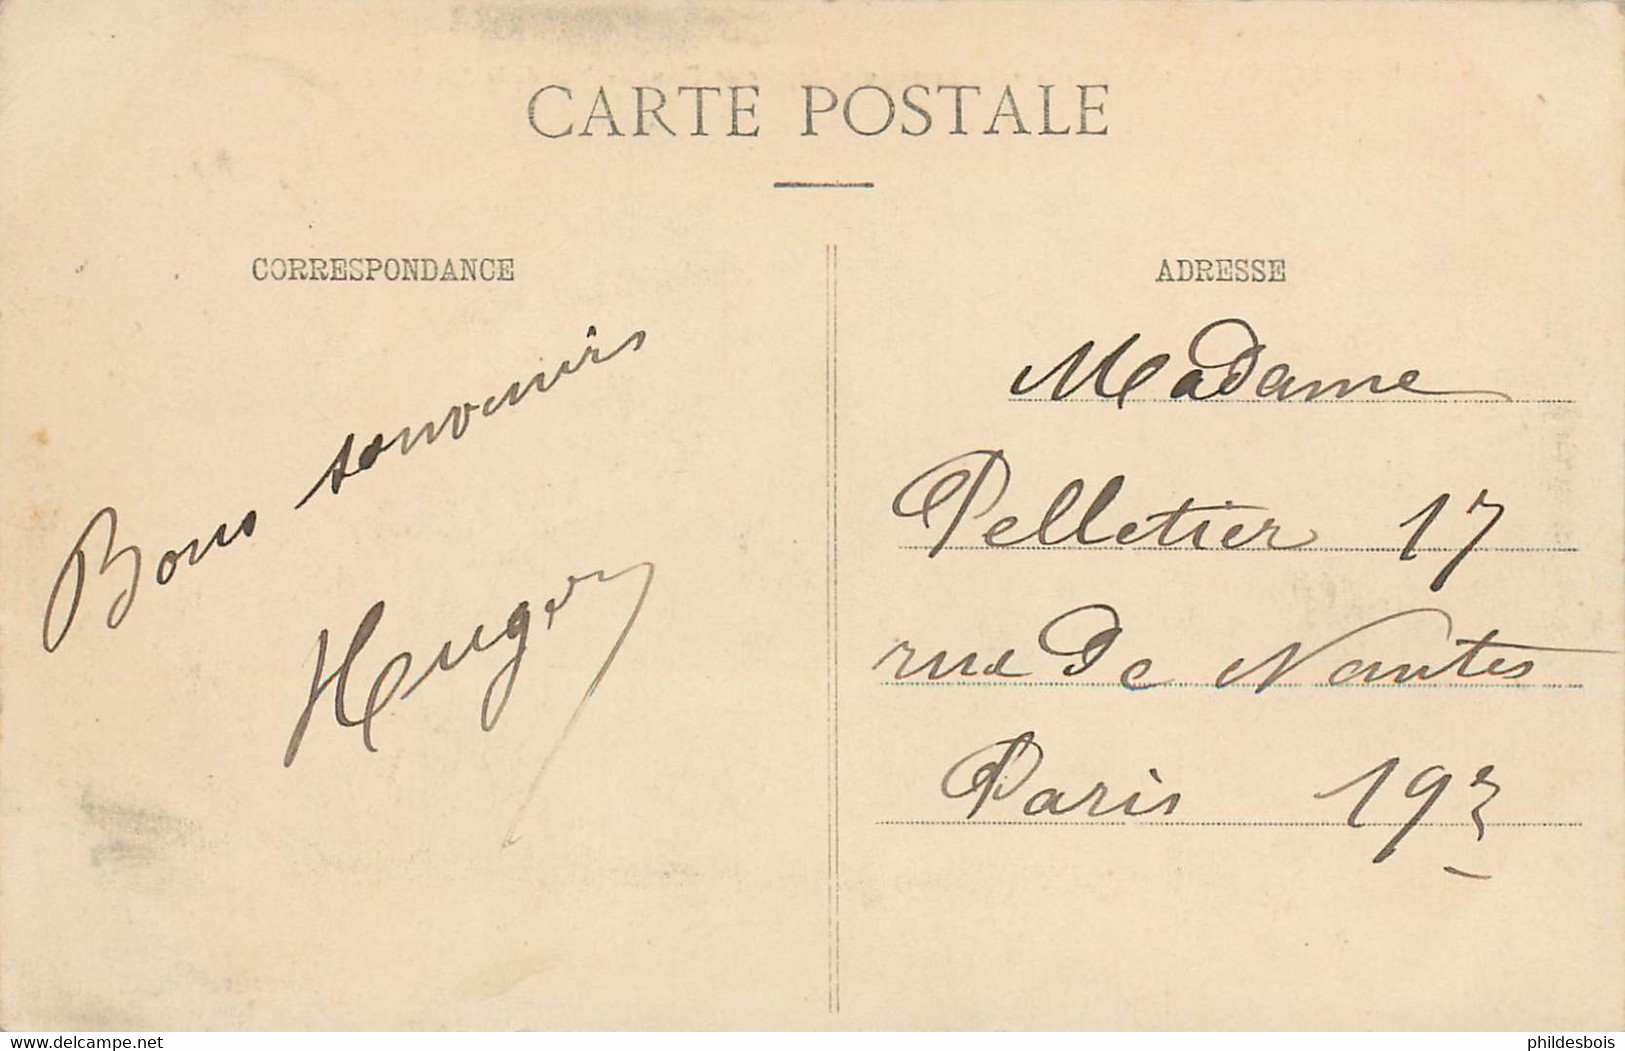 CARTE POSTALE
CORRESPONDANCE
Bons souvenirs
ADRESSE
Madame
Pelletier 17
rue de Nantes
Paris 19e
www.delcampe.net
phildesbois